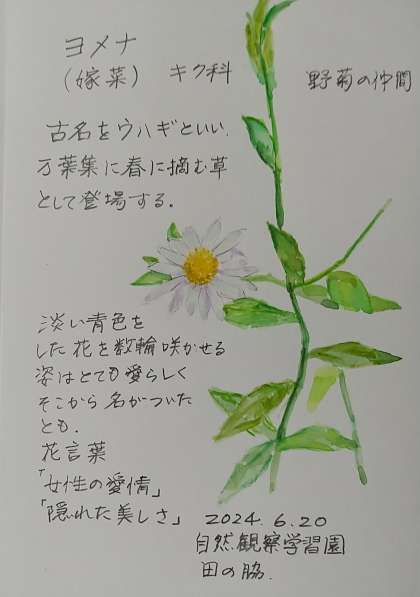 ヨメナ
(嫁菜) キク科
野菊の仲間
古名をウハギといい、
万葉集に春に摘む草
として登場する.
淡い青色を
した花を数輪咲かせる
姿はとても愛らしく
そこから名がついた
とも.
花言葉
「女性の愛情」
「隠れた美しさ」
2024.6.20
自然観察学習園
田の脇.